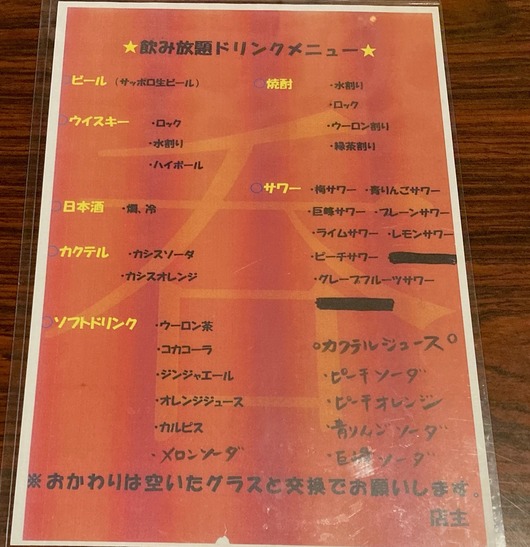 ★飲み放題ドリンクメニュー★
○ビール (サッポロ生ビール)
○ウイスキー ・ロック
・水割り
・ハイボール
○日本酒 ・燗、冷
○カクテル ・カシスソーダ
・カシスオレンジ
○ソフトドリンク ・ウーロン茶
・コカコーラ
・ジンジャエール
・オレンジジュース
・カルピス
・メロンソーダ
○焼酎 ・水割り
・ロック
・ウーロン割り
・緑茶割り
○サワー ・梅サワー ・青りんごサワー
・巨峰サワー ・プレーンサワー
・ライムサワー ・レモンサワー
・ピーチサワー
・グレープフルーツサワー
○カクテルジュース○
・ピーチソーダ
・ピーチオレンジ
・青りんごソーダ
・巨峰ソーダ
※おかわりは空いたグラスと交換でお願いします。
店主